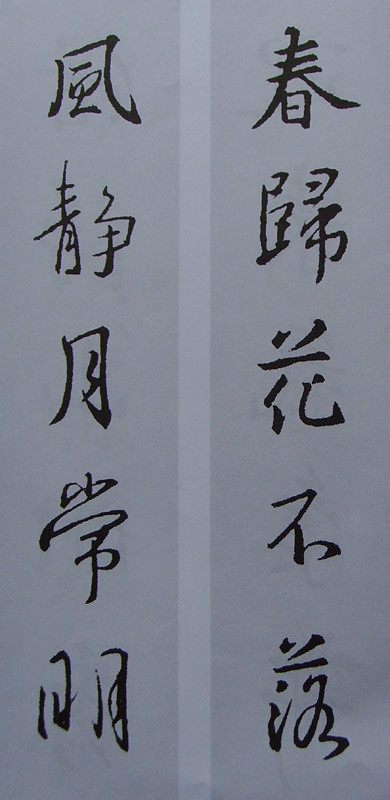 春歸花不落
風静月常明